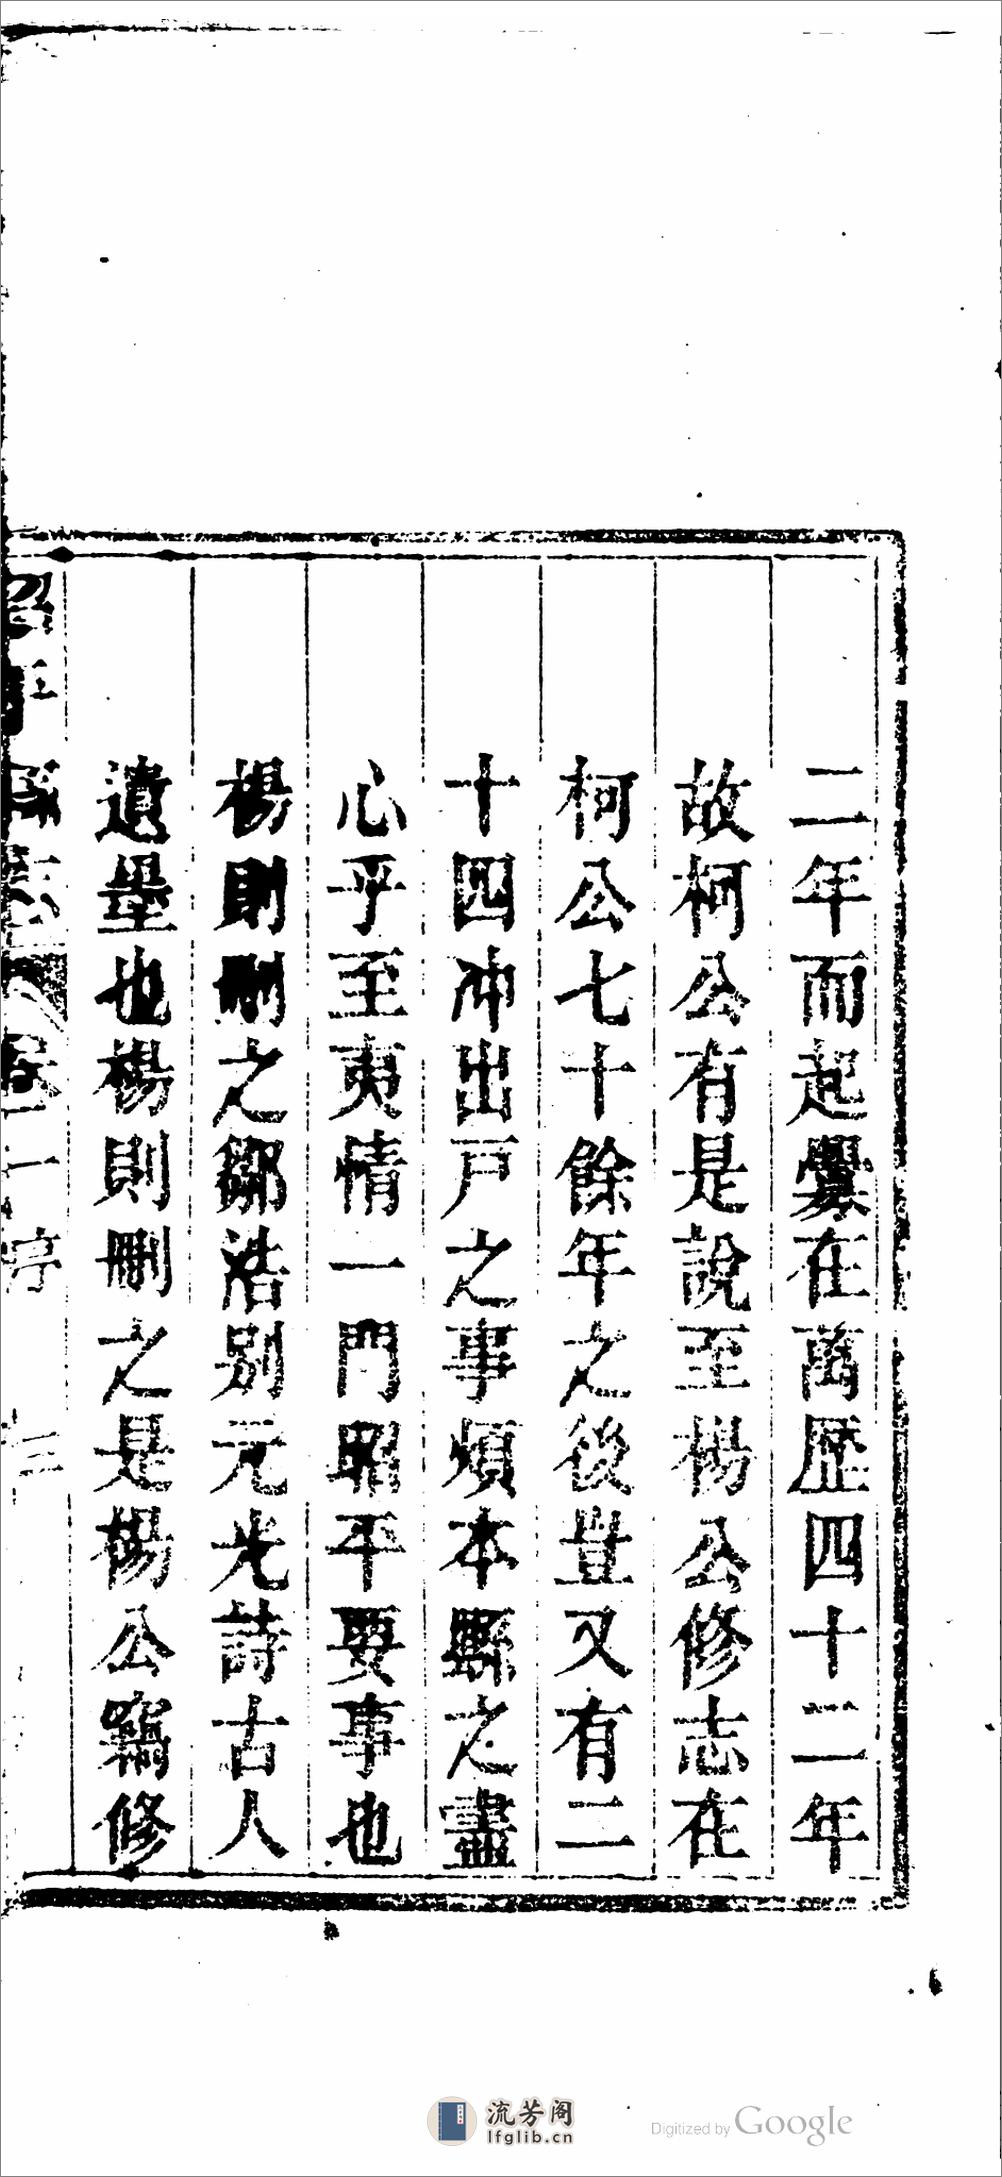 二年而起釁在萬歷四十二年
故柯公有是說至楊公修志在
柯公七十餘年之後豈又有二
十四冲出戸之事煩本縣之盡
心乎至夷情一門昭平要事也
楊則刪之鄒浩别元光詩古人
遺墨也楊則刪之是楊公竊修
昭平縣志 卷一序 三
流芳阁
lfglib.cn
Digitized by Google